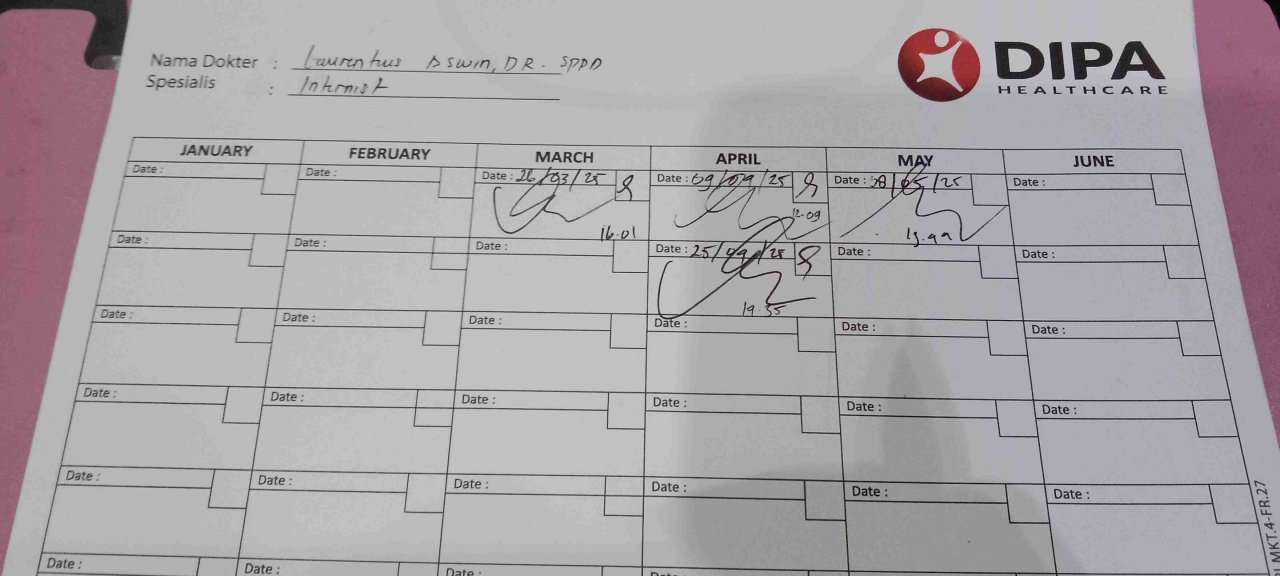 DIPA
HEALTHCARE
Nama Dokter : Laurentius Aswin, DR. SPPD
Spesialis : Internist
JANUARY FEBRUARY MARCH APRIL MAY JUNE
Date : Date : Date : 26/03/25 Date : 09/04/25 Date : /05/25 Date :
16.01 12.09
Date : Date : Date : Date : 25/04/25 Date : Date :
19.35
Date : Date : Date : Date : Date : Date :
Date : Date : Date : Date : Date : Date :
Date : Date : Date : Date : Date : Date :
Date : Date : Date : Date : Date :
MKT.4-FR.27